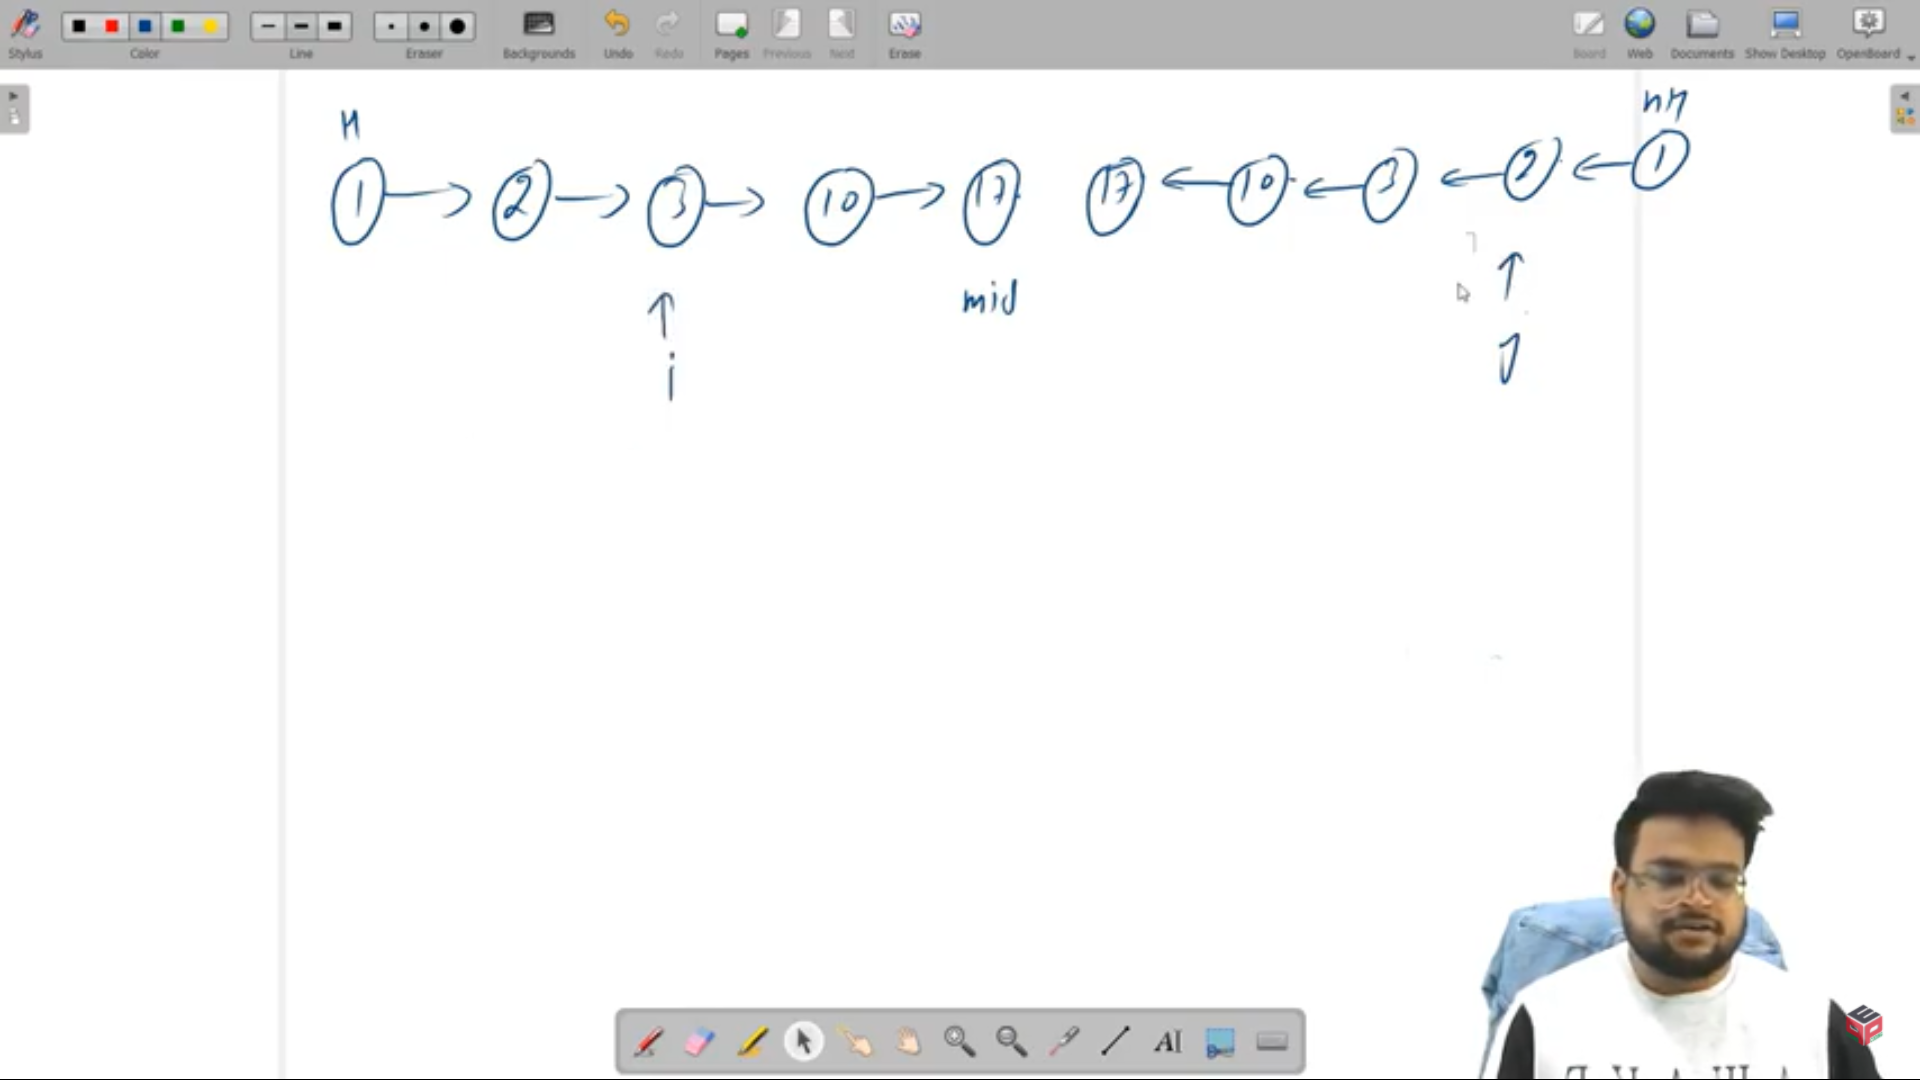 Stylus Color Line Eraser Backgrounds Undo Redo Pages Previous Next Erase Board Web Documents Show Desktop OpenBoard
H nH
1 2 3 10 17 17 10 3 2 1
mid
i J
AI